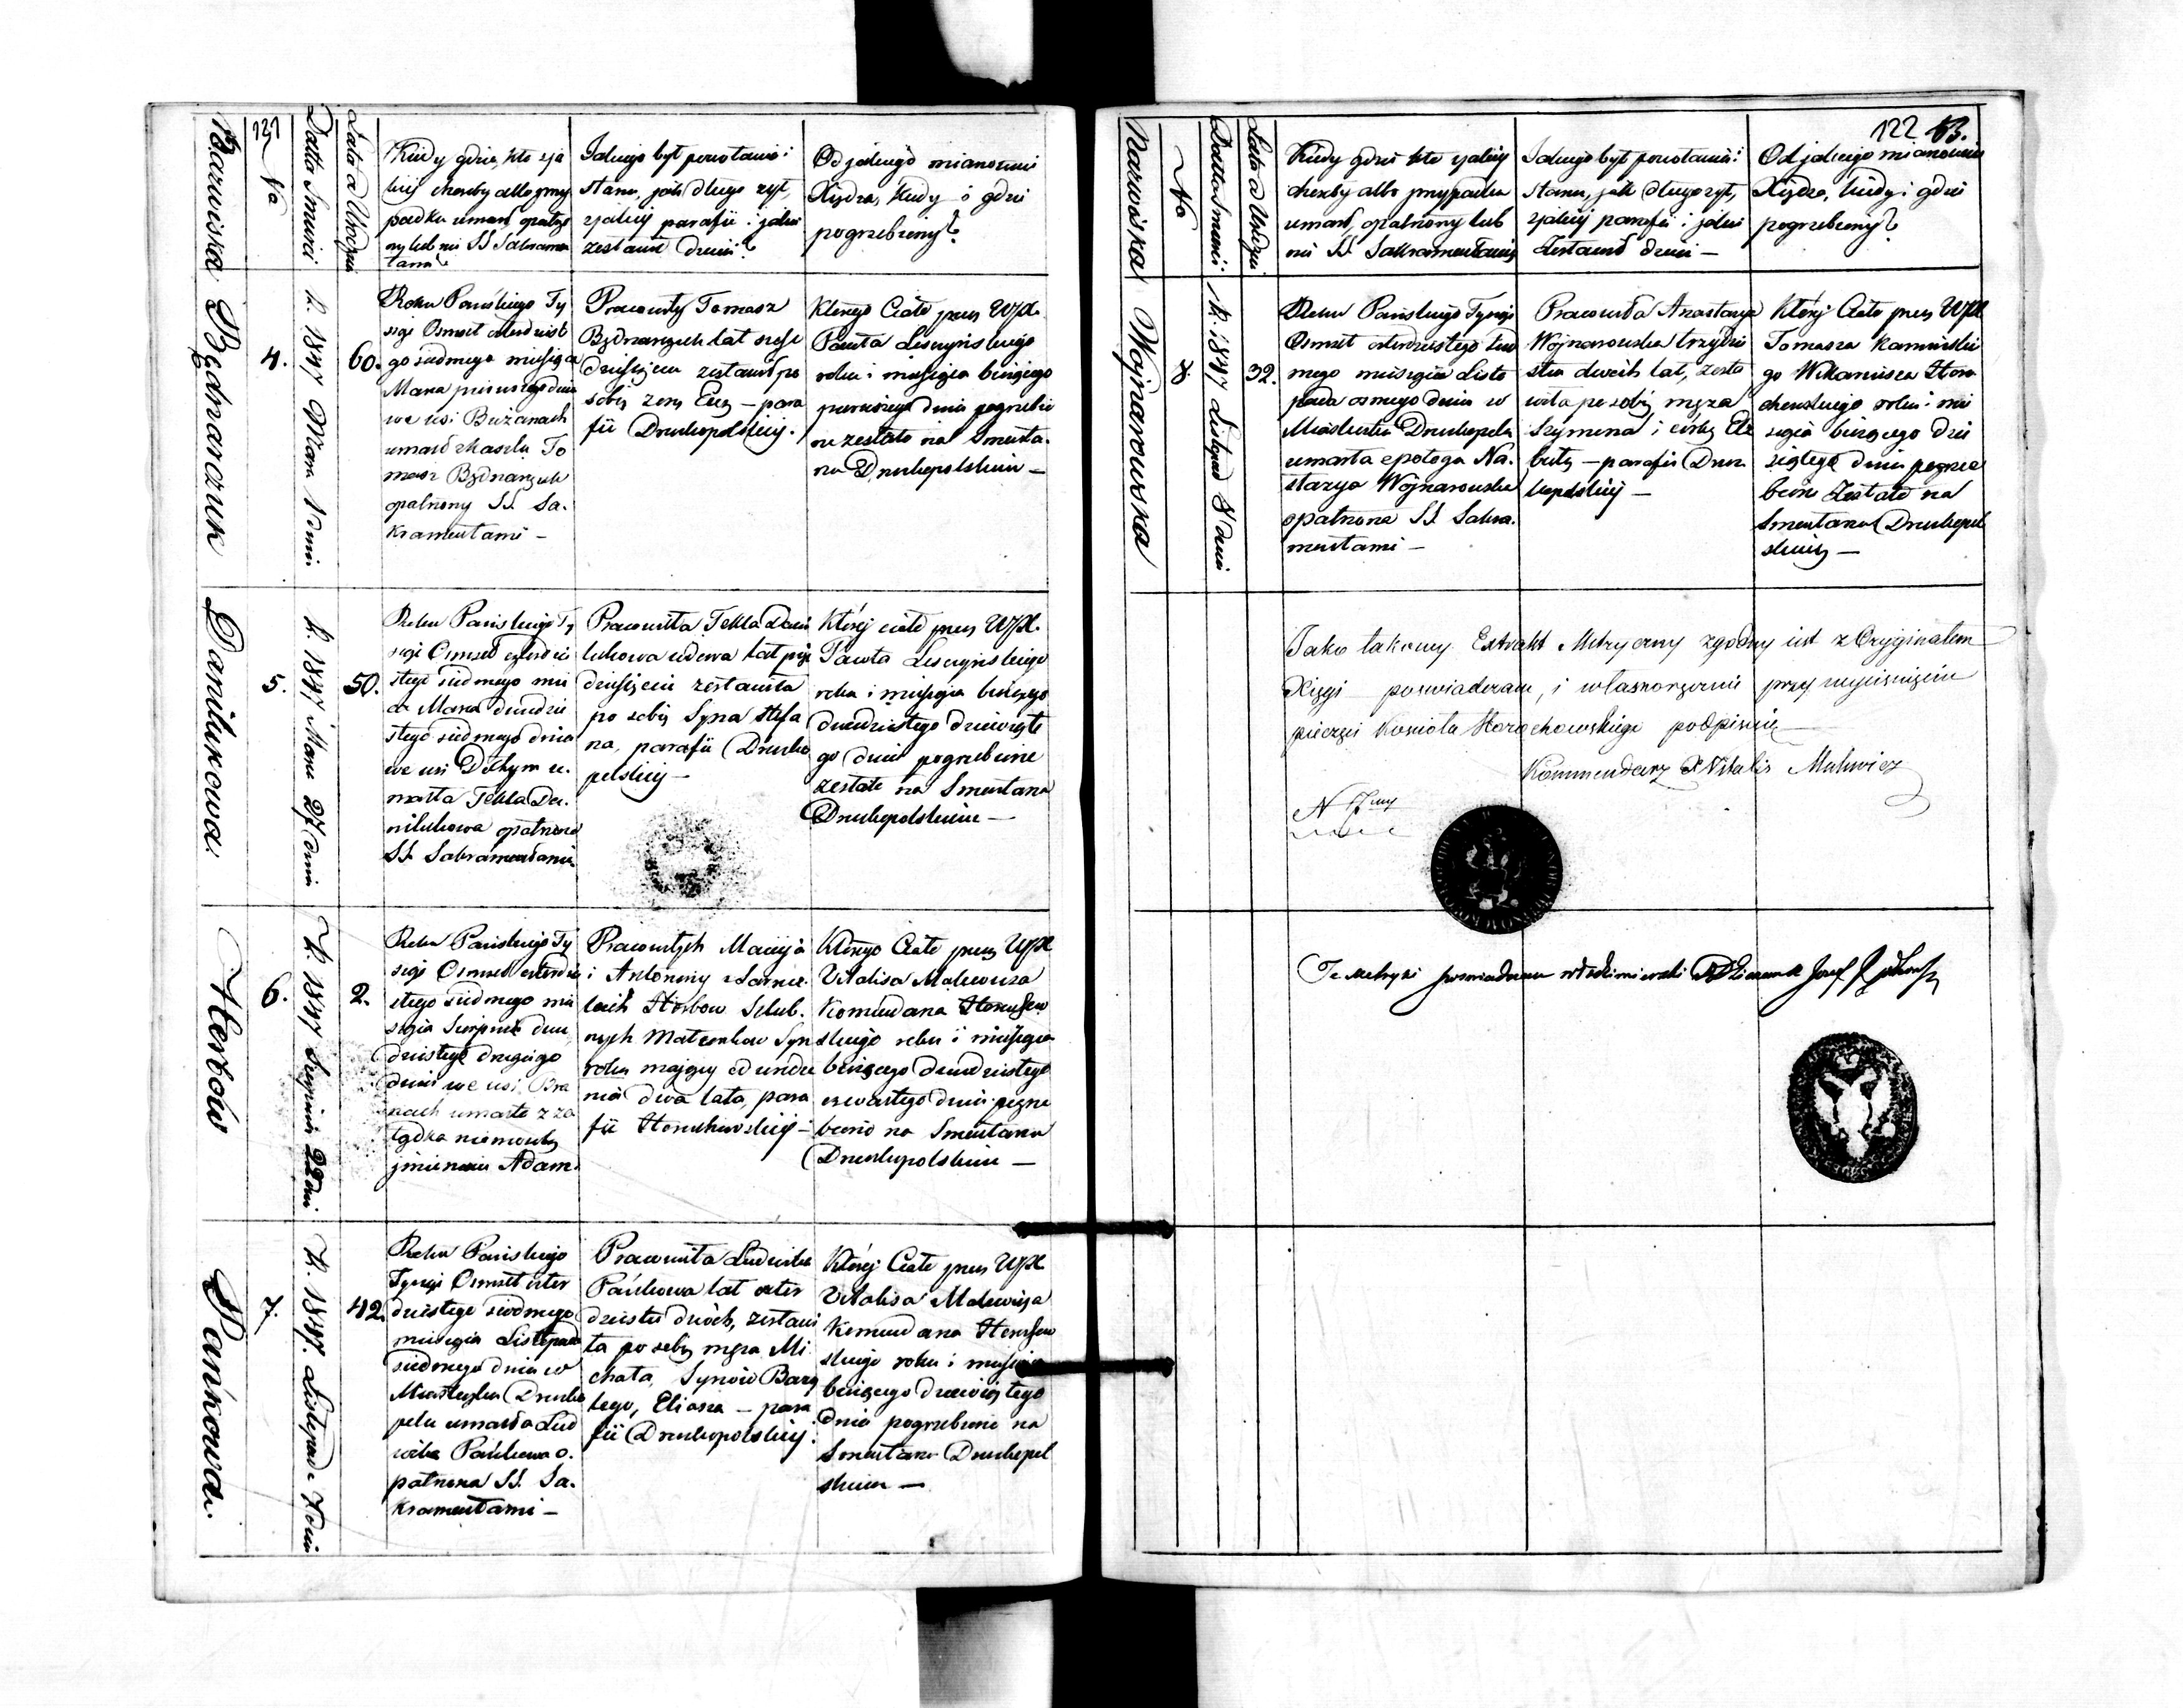 121
Nazwiska
No
Datta Smierci
Lata od Urodzin
Kiedy gdzie, kto z ja
kiej choroby albo przy
padku umarł opatrzo
ny lub nie SS Sakramen
tami?
Jakiego był powołania i
stanu, jak długo żył,
z jakiej parafii i jakie
zostawił dzieci?
Od jakiego mianowicie
Xiędza, kiedy i gdzie
pogrzebiony?
Bednarzuk
4.
R. 1847 Marca 1 dnia
60.
Roku Pańskiego Ty
siąc Osmset czterdzieste
go siódmego miesiąca
Marca pierwszego dnia
we wsi Bużanach
umarł
Tomasz Bednarzuk
opatrzony SS. Sa.
kramentami —
Pracowity Tomasz
Bednarzuk lat sześć
dziesięciu zostawił po
sobie żonę Ewę — para
fii Druzkopolskiej.
Którego Ciało przez WJX.
Pawła Lesczyńskiego
roku i miesiąca bieżącego
pierwszego dnia pogrzebio
ne zostało na Smenta.
rzu Druzkopolskim —
Danilukowa.
5.
R. 1847 Marca 27 dnia
50.
Roku Pańskiego Ty
siąc Osmset czterdzie
stego siódmego mie
ca Marca dwudzie
stego siódmego dnia
we wsi
u.
marła Tekla Da.
nilukowa opatrzona
SS. Sakramentami.
Pracowita Tekla Dani
lukowa wdowa lat pięć
dziesięciu zostawiła
po sobie Syna Stefa
na, parafii Druzko
polskiej —
Której ciało przez WJX.
Pawła Lesczyńskiego
roku i miesiąca bieżącego
dwudziestego dziewiąte
go dnia pogrzebione
zostało na Smentarzu
Druzkopolskim —
Herbów
6.
R. 1847 Sierpnia 22 dnia
2.
Roku Pańskiego Ty
siąc Osmset czterdzie
stego siódmego mie
siąca Sierpnia dwu
dziestego drugiego
dnia we wsi Bra
nach umarło z za
niemowlę
jmieniem Adam.
Pracowitych Macieja
i Antoniny z
Herbow Ślub.
nych Małżonkow Syn
roku mający od urodze
nia dwa lata, para
fii Horochowskiej —
Którego Ciało przez WJX
Witalisa Malewicza
Komendarza Horochow
skiego roku i miesiąca
bieżącego dwudziestego
czwartego dnia pogrze
biono na Smentarzu
Druzkopolskim —
Pańkowa.
7.
R. 1847. Listopada 7 dnia
42.
Roku Pańskiego
Tysiąc Osmset czter
dziestego siódmego
miesiąca Listopada
siódmego dnia w
Miasteczku Druzko
polu umarła Lud
wika Pańkowa o.
patrzona SS. Sa.
kramentami —
Pracowita Ludwika
Pańkowa lat czter
dziestu dwóch, zostawi
ła po sobie męża Mi
chała, Synów
Eliasza — para
fii Druzkopolskiej.
Której Ciało przez WJX
Witalisa Malewicza
Komendarza Horochow
skiego roku i miesiąca
bieżącego dziewiątego
dnia pogrzebione na
Smentarzu Druzkopol
skim —
122 13.
Nazwiska
No
Datta Smierci
Lata od Urodzin
Kiedy gdzie kto z jakiej
choroby albo przypadku
umarł, opatrzony lub
nie SS. Sakramentami
Jakiego był powołania i
stanu, jak długo żył,
z jakiej parafii i jakie
Zostawił dzieci —
Od jakiego mianowicie
Xiędza, kiedy i gdzie
pogrzebiony?
Wojnarowska
8
R. 1847 Listopad 8 dnia
32.
Roku Pańskiego Tysiąc
Osmset czterdziestego siód
mego miesiąca Listo
pada osmego dnia w
Miasteczku Druzkopolu
umarła z połogu Na.
stazya Wojnarowska
opatrzona SS. Sakra.
mentami —
Pracowita Anastazya
Wojnarowska trzydzie
stu dwóch lat, zosta
wiła po sobie męża
Szymona i córkę Elż
bietę — parafii Druz
kopolskiej —
Której Ciało przez WJX
Tomasza Kamińskie
go Wikariusza Horo
chowskiego roku i mie
siąca bieżącego dzie
siątego dnia pogrze
bione Zostało na
Smentarzu Druzkopol
skim —
Jako takowy Extrakt Metryczny zgodny iest z Oryginałem
Xięgi poswiadczam, i własnoręcznie przy wyciśnięciu
pieczęci Kościoła Horochowskiego podpisuię —
Kommendarz X Vitalis Malewicz
Te metryki poswiadczam